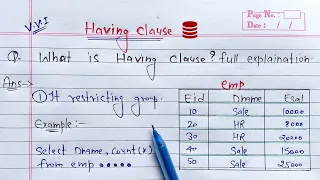 V.V.I
Having clause
Page No.:
Date: / /
Q. What is Having clause? full explaination.
Ans:-
① It restricting group.
Example:-
Select Dname, Count(*)
from emp .....
emp
Eid Dname Esal
10 Sale 10000
20 HR 8000
30 HR 20000
40 Sale 15000
50 Sale 25000